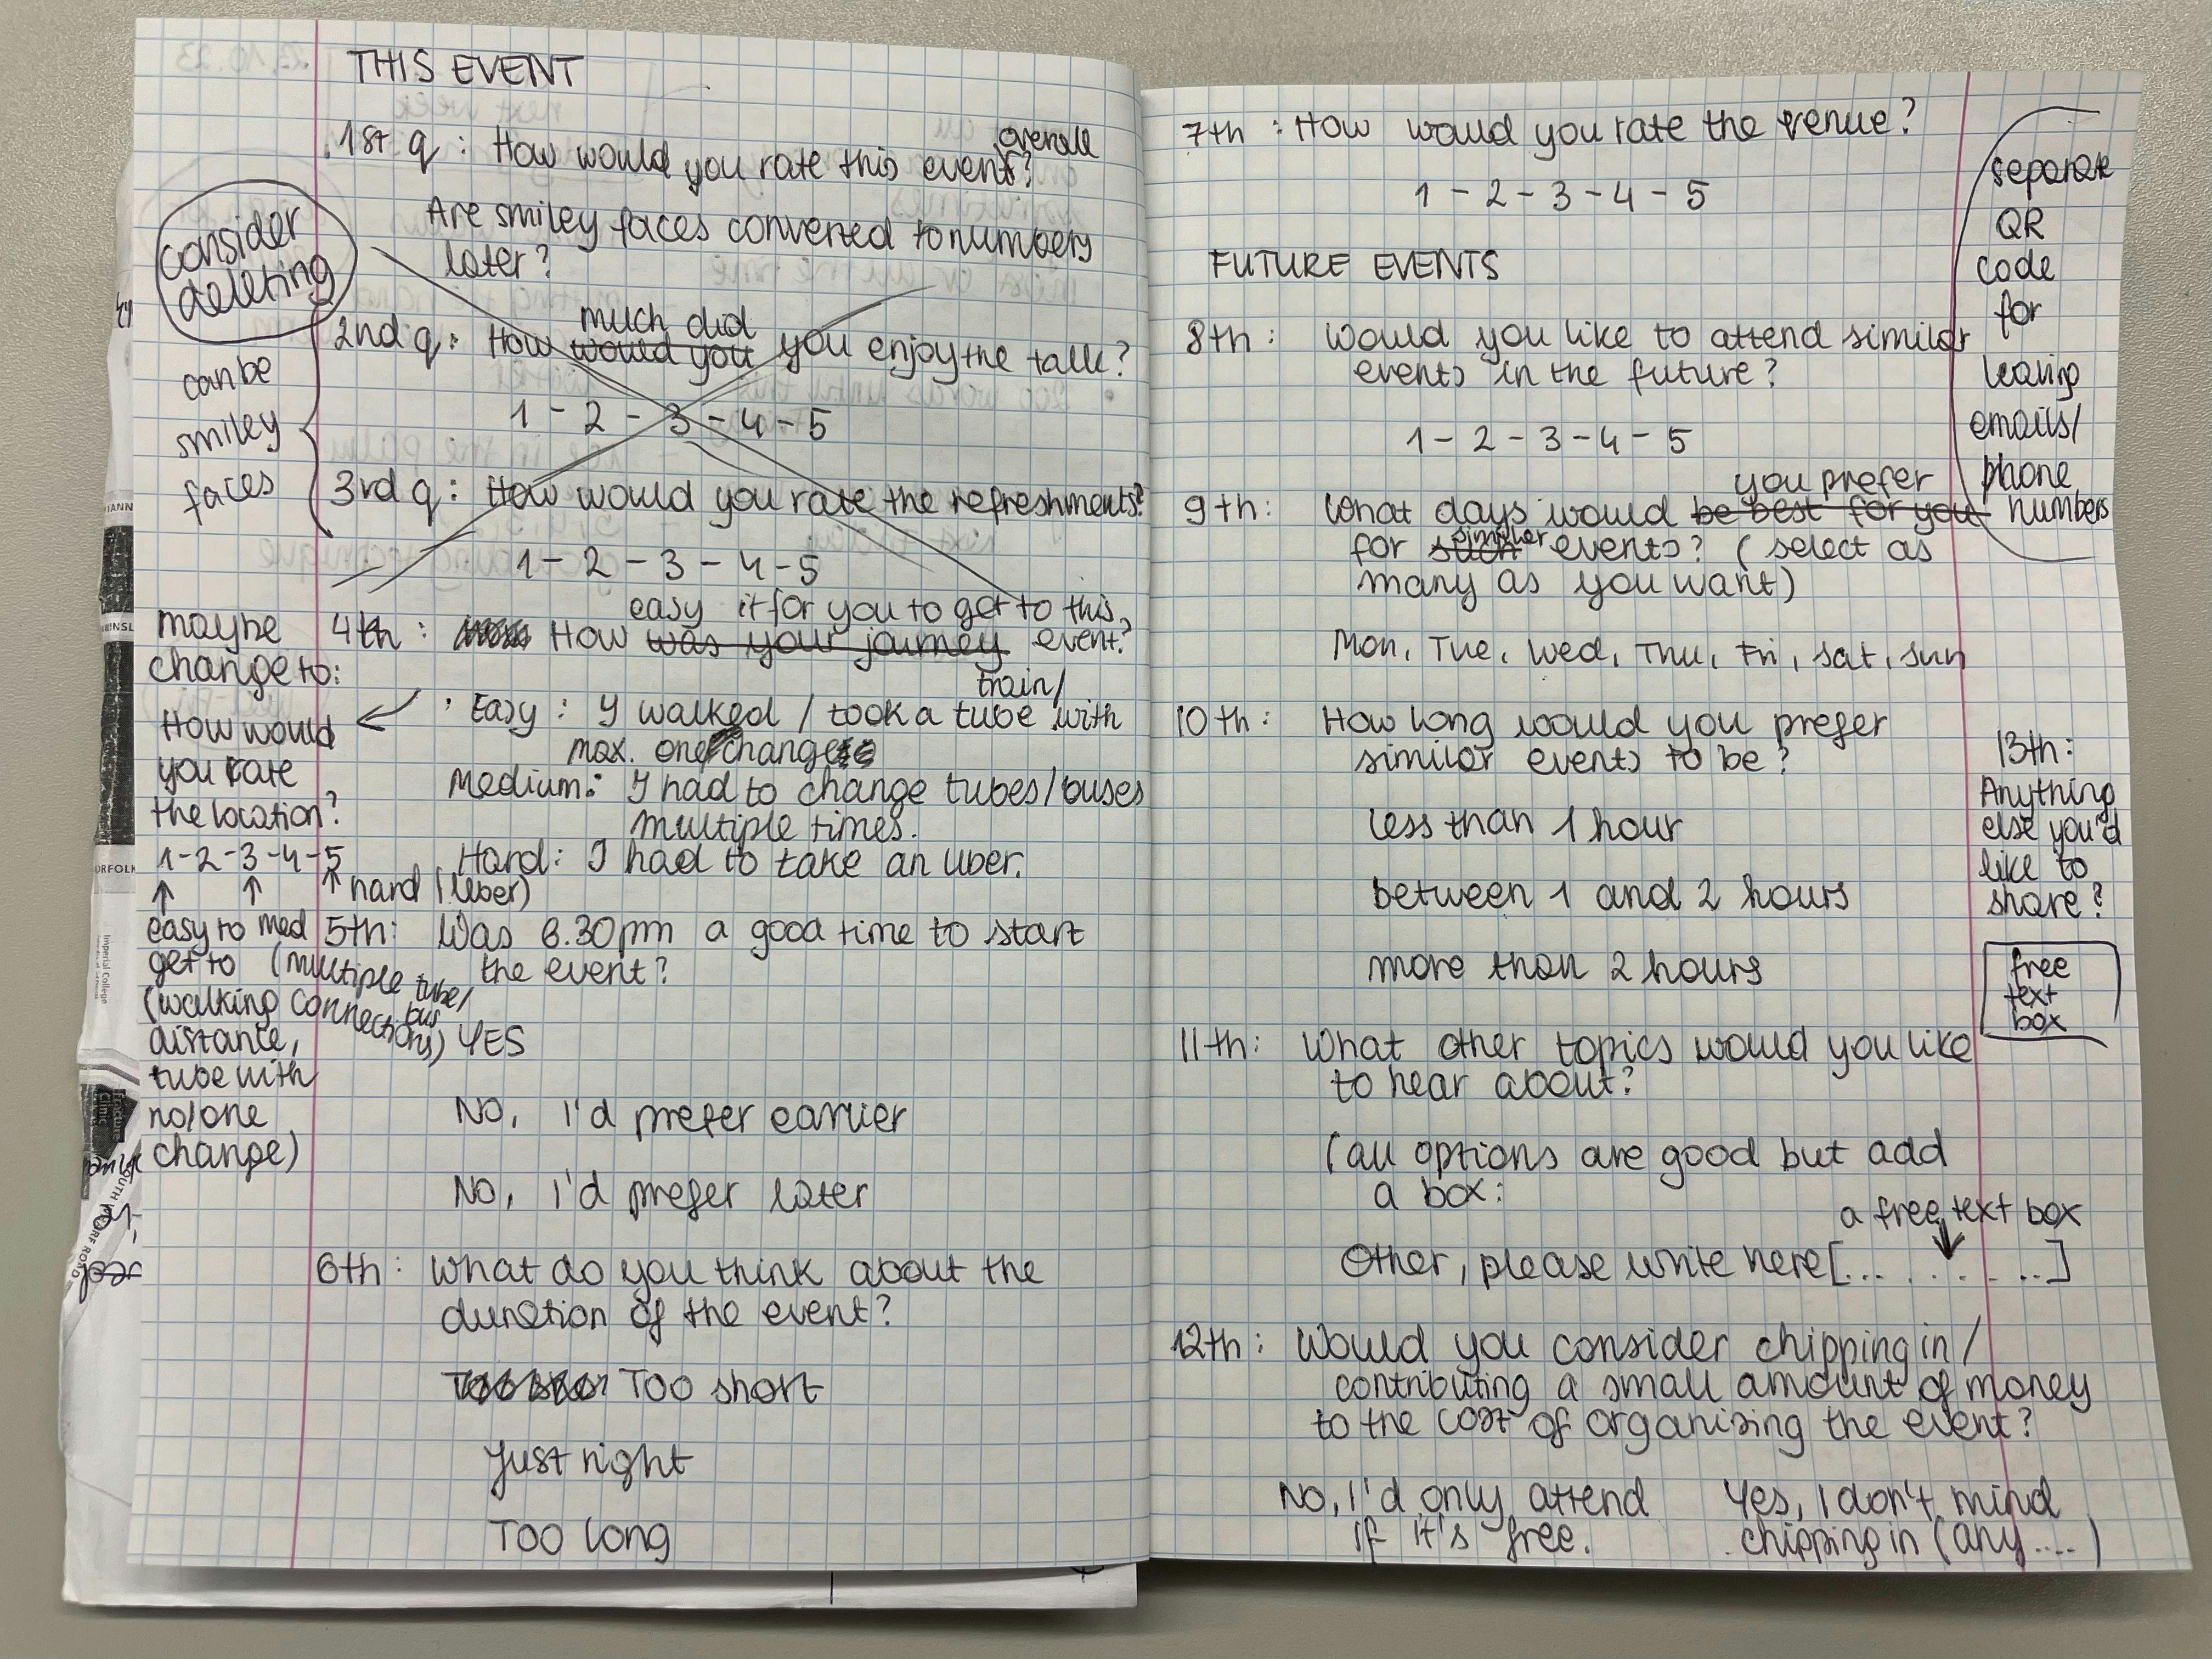 THIS EVENT
1st q : How would you rate this event overall?
Are smiley faces converted to numbers
later?
consider
deleting
can be
smiley
faces
2nd q : How would you much did you enjoy the talk?
1 - 2 - 3 - 4 - 5
3rd q : How would you rate the refreshments?
1 - 2 - 3 - 4 - 5
4th : How was your journey easy it for you to get to this event?
· Easy : I walked / took a train/ tube with
max. one change
Medium : I had to change tubes/buses
multiple times.
Hard : I had to take an uber.
maybe
change to:
How would
you rate
the location?
1-2-3-4-5
easy to
get to
(walking
distance,
tube with
no/one
change)
med
(multiple tube/
bus
connections)
hard (uber)
5th : Was 6.30pm a good time to start
the event?
YES
NO, I'd prefer earlier
NO, I'd prefer later
6th : What do you think about the
duration of the event?
Too short
Just right
Too long
7th : How would you rate the venue?
1 - 2 - 3 - 4 - 5
FUTURE EVENTS
8th : Would you like to attend similar
events in the future?
1 - 2 - 3 - 4 - 5
separate
QR
code
for
leaving
emails/
phone
numbers
9th : What days would be best for you you prefer
for such similar events? (select as
many as you want)
Mon, Tue, Wed, Thu, Fri, Sat, Sun
10th : How long would you prefer
similar events to be?
less than 1 hour
between 1 and 2 hours
more than 2 hours
11th : What other topics would you like
to hear about?
(all options are good but add
a box:
a free text box
Other, please write here [... . . . ..]
12th : Would you consider chipping in /
contributing a small amount of money
to the cost of organising the event?
No, I'd only attend
if it's free.
Yes, I don't mind
chipping in (any ....)
13th :
Anything
else you'd
like to
share?
free
text
box